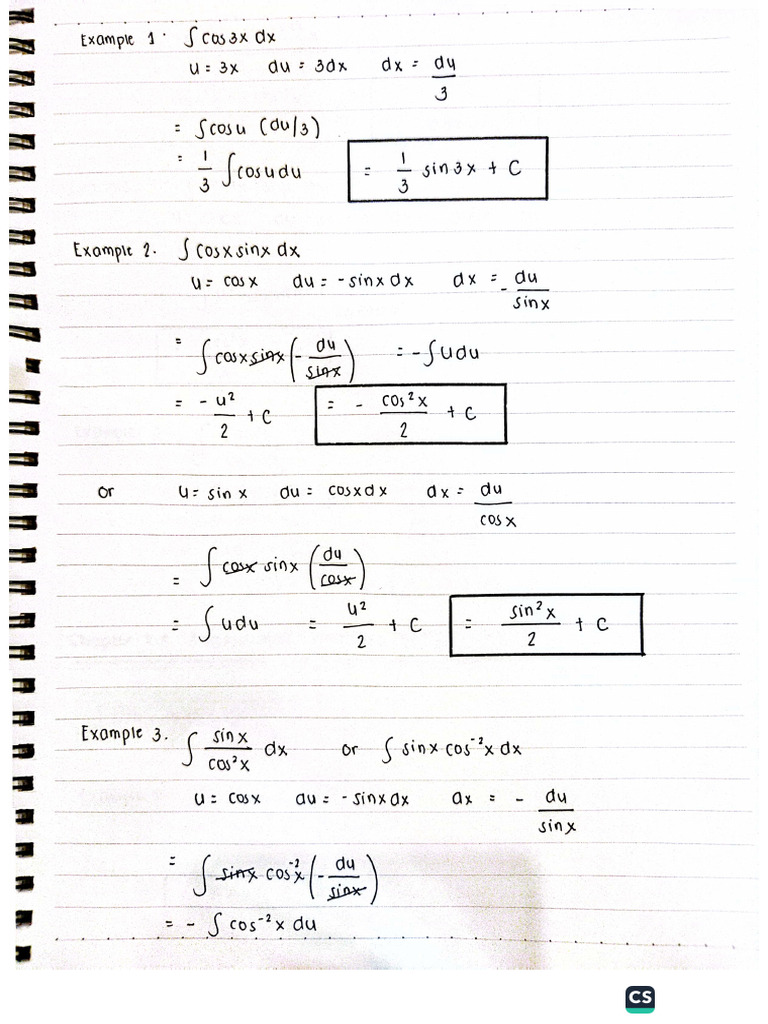 Example 1. ∫ cos3x dx
u = 3x du = 3dx dx = du/3
= ∫ cosu (du/3)
= 1/3 ∫ cosudu = 1/3 sin3x + C
Example 2. ∫ cosxsinx dx
u = cosx du = -sinxdx dx = - du/sinx
= ∫ cosxsinx (- du/sinx) = -∫ udu
= - u²/2 + C = - cos²x/2 + C
or u = sinx du = cosxdx dx = du/cosx
= ∫ cosx sinx (du/cosx)
= ∫ udu = u²/2 + C = sin²x/2 + C
Example 3. ∫ sinx/cos²x dx or ∫ sinx cos⁻²x dx
u = cosx du = -sinxdx dx = - du/sinx
= ∫ sinx cos⁻²x (- du/sinx)
= - ∫ cos⁻²x du
CS